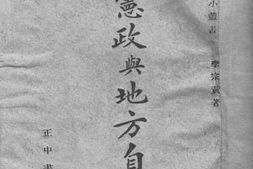 小叢書
李宗黃著
憲政與地方自
正中書